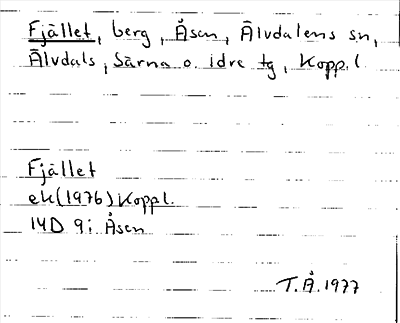 Fjället, berg, Åsen, Älvdalens sn,
Älvdals, Särna o. idre tg, Kopp.l.
Fjället
ek(1976) Koppl.
14D 9i Åsen
T.Å.1977